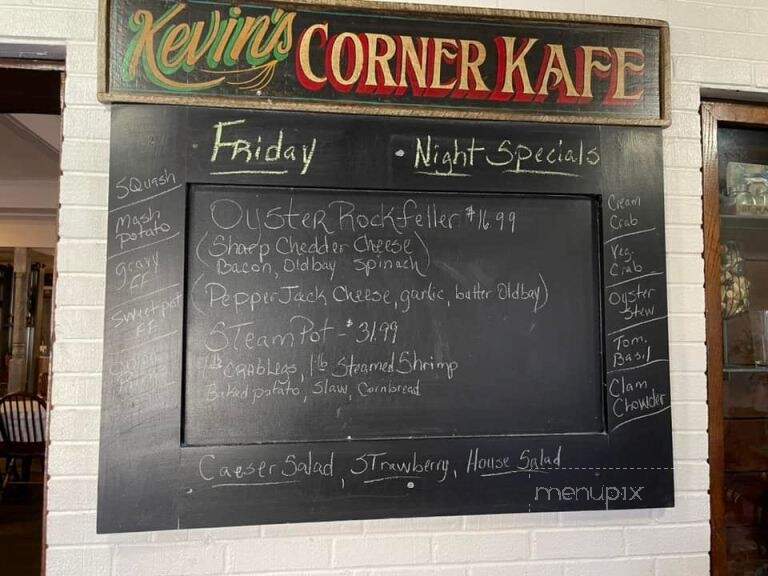 Kevin's CORNER KAFE
Friday Night Specials
Squash
Mash
potato
gravy
FF
Sweet pot
FF
Oyster Rockfeller $16.99
(Sharp Chedder Cheese
Bacon, Oldbay Spinach)
(Pepper Jack Cheese, garlic, butter Oldbay)
STeam Pot - $31.99
1lb CRAb Legs, 1lb Steamed Shrimp
Baked potato, Slaw, Cornbread
Cream
Crab
Veg.
Crab
Oyster
Stew
Tom.
Basil
Clam
Chowder
Caeser Salad, STrawberry, House Salad
menupix